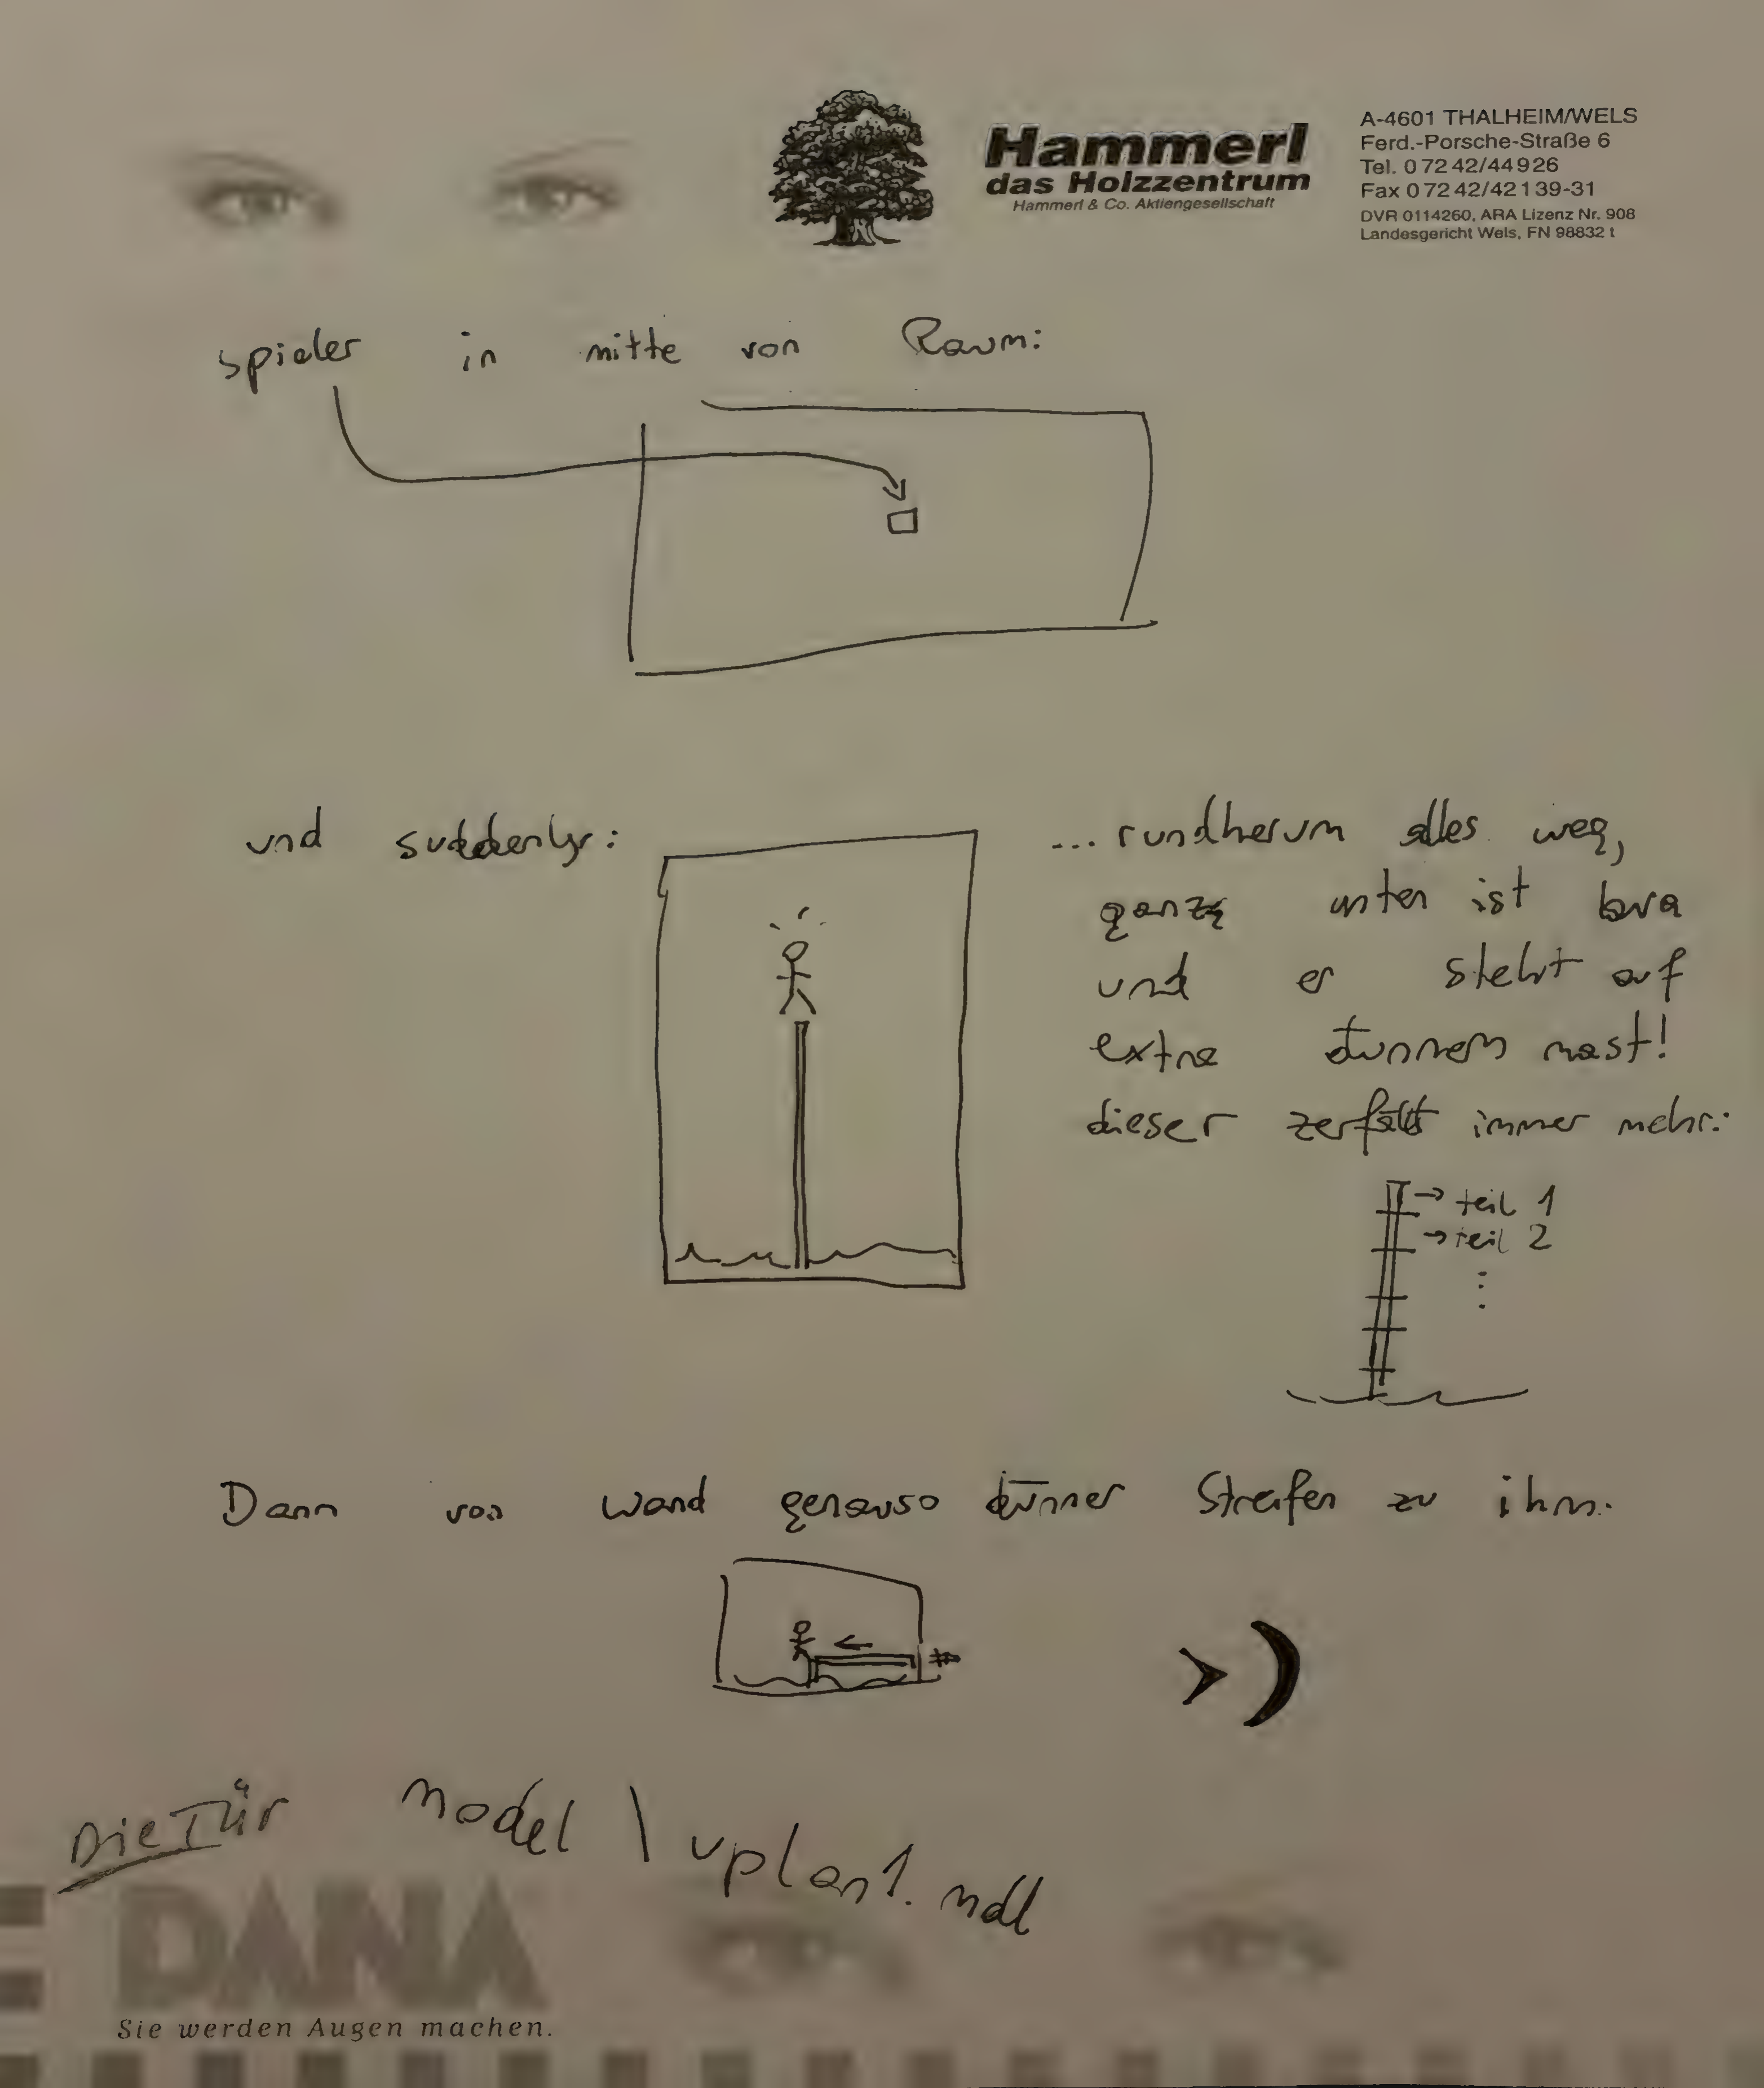 Hammerl
das Holzzentrum
Hammerl & Co. Aktiengesellschaft
A-4601 THALHEIM/WELS
Ferd.-Porsche-Straße 6
Tel. 0 72 42/44 9 26
Fax 0 72 42/42 1 39-31
DVR 0114260, ARA Lizenz Nr. 908
Landesgericht Wels, FN 98832 t
spieler in mitte von Raum:
und suddenly:
... rundherum alles weg,
ganz unten ist lava
und er steht auf
extra dünnem mast!
dieser zerfällt immer mehr:
→ teil 1
→ teil 2
Dann von wand genauso dünner Streifen zu ihm.
>)
Die Tür
model \ vplant1.mdl
DANA
Sie werden Augen machen.